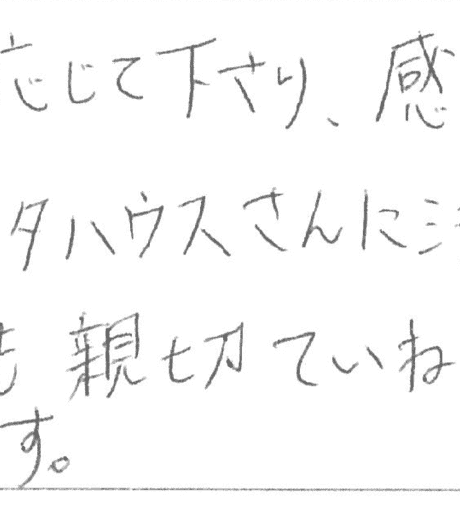 応じて下さり、感
タハウスさんに
も親切ていね
す。